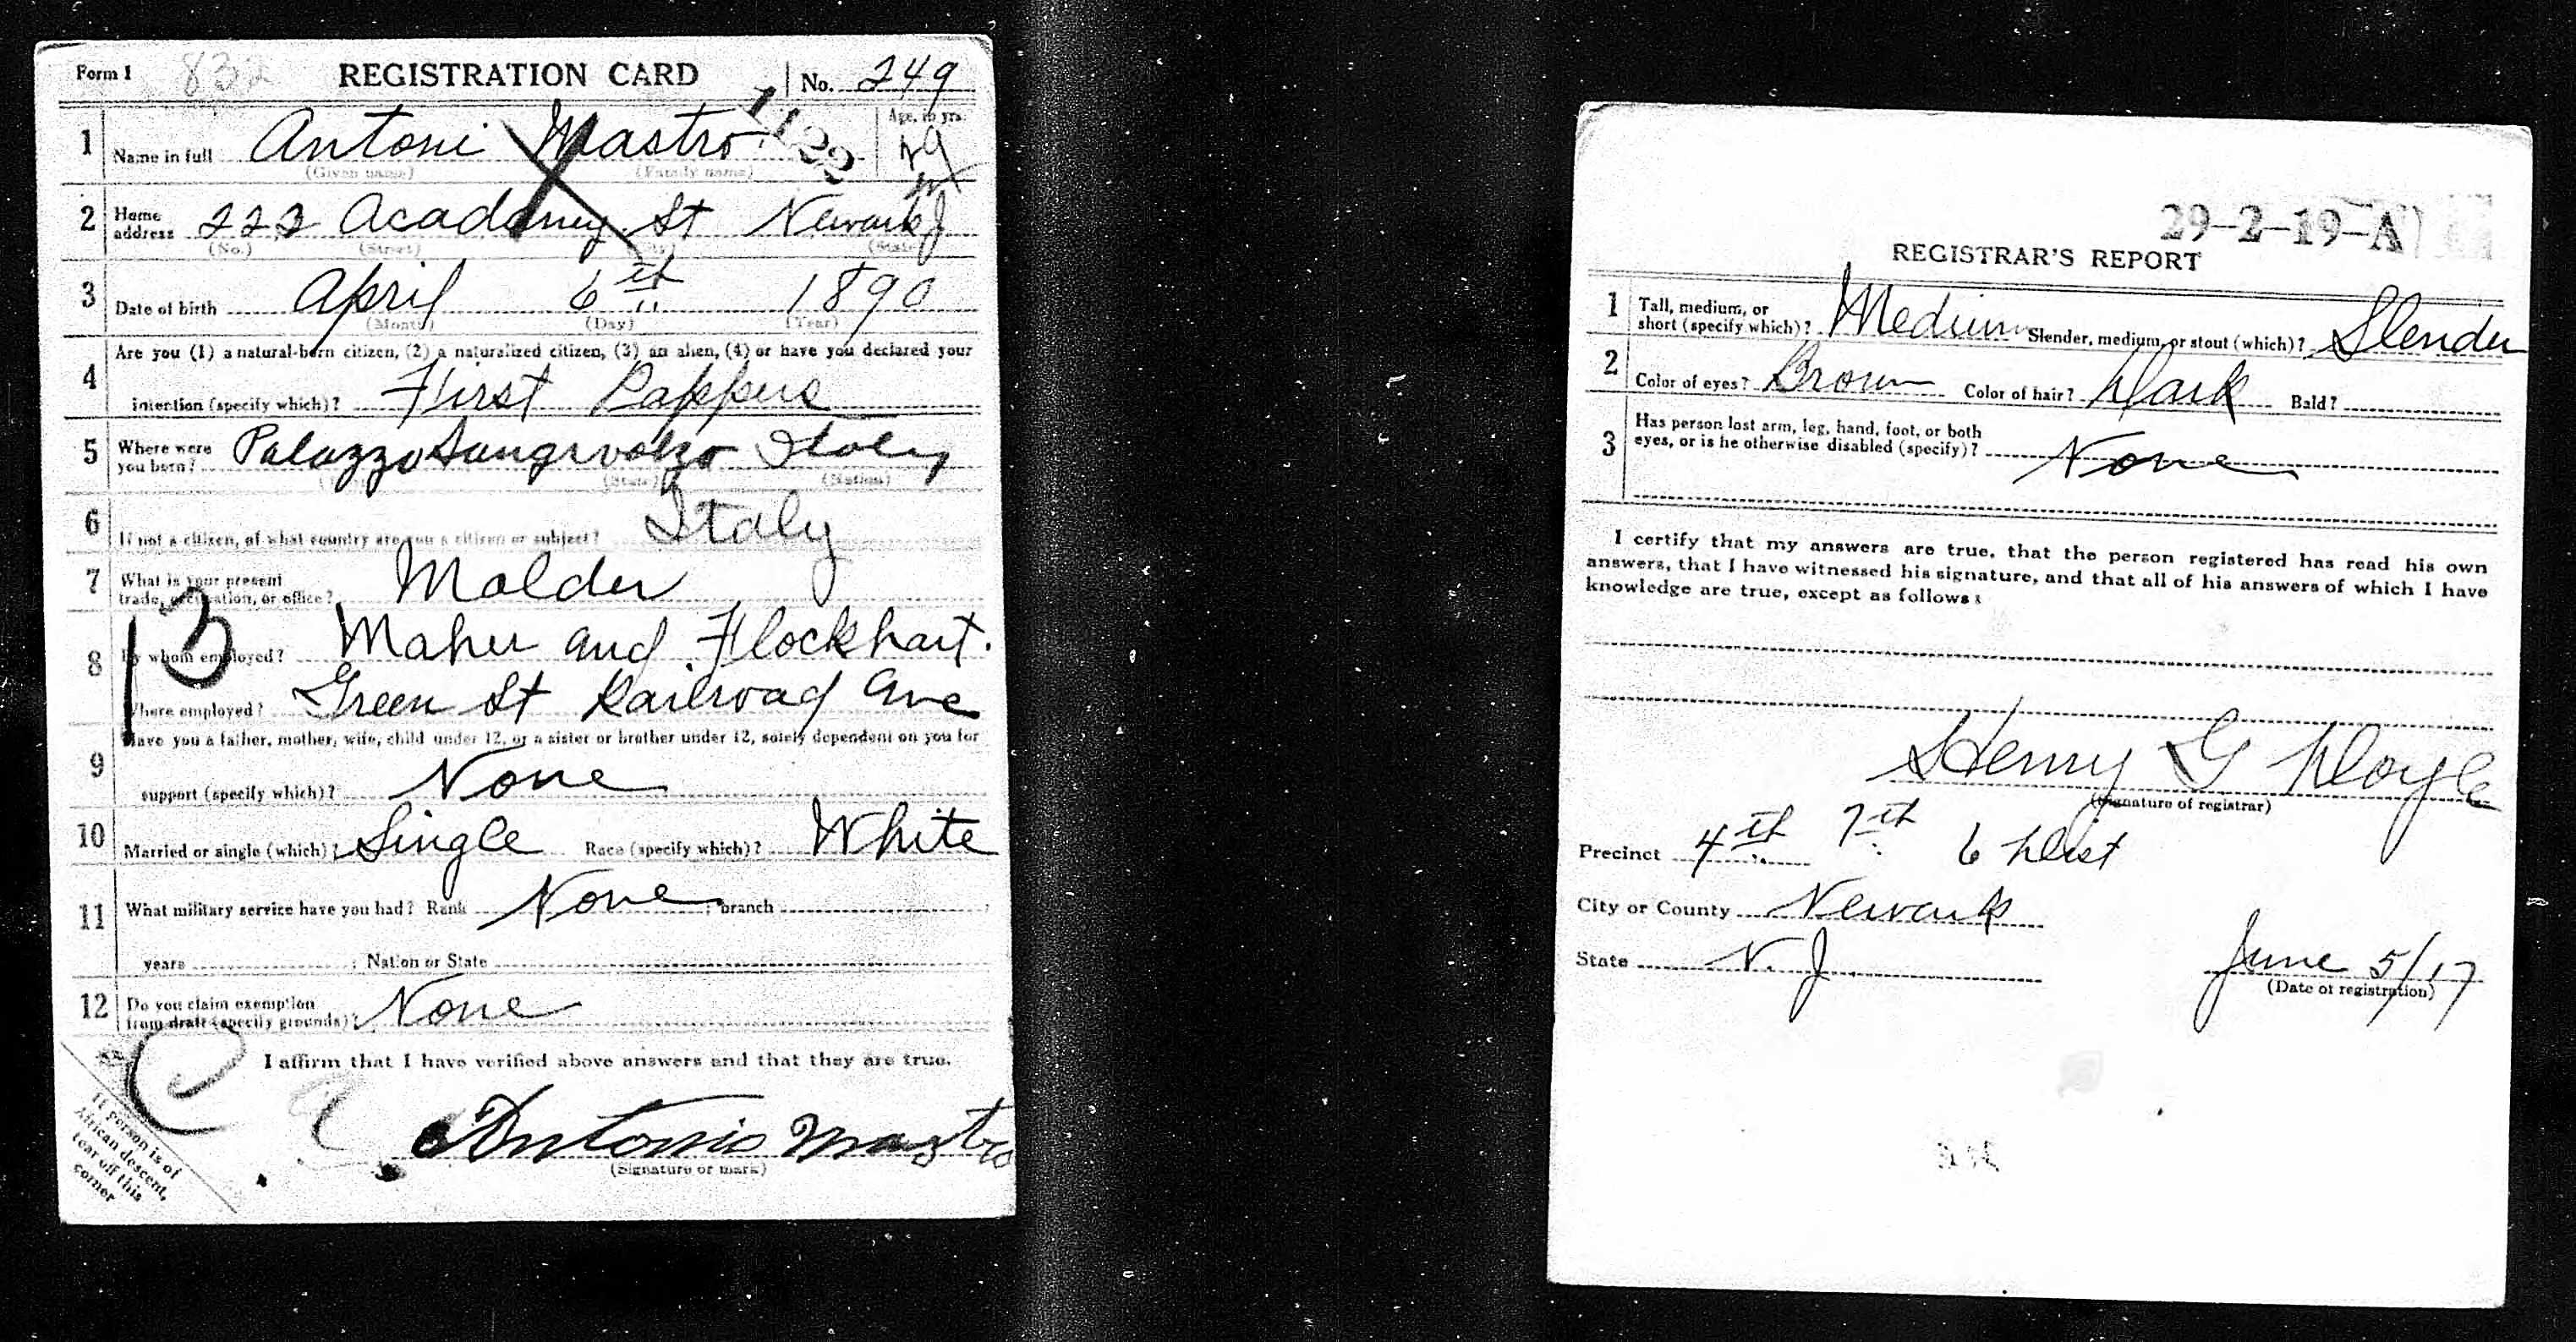 Form 1 832 REGISTRATION CARD No. 249
1 Name in full Antoni Mastro Age, in yrs.
(Given name) (Family name)
1122
2 Home address 223 Academy St Newark J
(No.) (Street) (City) (State)
3 Date of birth April 6th 1890
(Month) (Day) (Year)
4 Are you (1) a natural-born citizen, (2) a naturalized citizen, (3) an alien, (4) or have you declared your
intention (specify which)? First Pappers
5 Where were you born? Palazzo Italy
(Town) (State) (Nation)
6 If not a citizen, of what country are you a citizen or subject? Italy
7 What is your present trade, occupation, or office? Molder
13
8 By whom employed? Maher and Flockhart.
Where employed? Green St Railroad Ave
9 Have you a father, mother, wife, child under 12, or a sister or brother under 12, solely dependent on you for
support (specify which)? None
10 Married or single (which)? Single Race (specify which)? White
11 What military service have you had? Rank None ; branch
years ; Nation or State
12 Do you claim exemption from draft (specify grounds)? None
I affirm that I have verified above answers and that they are true.
Antonio Mastro
(Signature or mark)
If person is of
African descent,
tear off this
corner
29-2-19-A
REGISTRAR'S REPORT
1 Tall, medium, or short (specify which)? Medium Slender, medium, or stout (which)? Slender
2 Color of eyes? Brown Color of hair? Dark Bald?
3 Has person lost arm, leg, hand, foot, or both
eyes, or is he otherwise disabled (specify)? None
I certify that my answers are true, that the person registered has read his own
answers, that I have witnessed his signature, and that all of his answers of which I have
knowledge are true, except as follows:
Henry G Doyle
(Signature of registrar)
Precinct 4th 7th 6 Dist
City or County Newark
State N. J. June 5/17
(Date of registration)